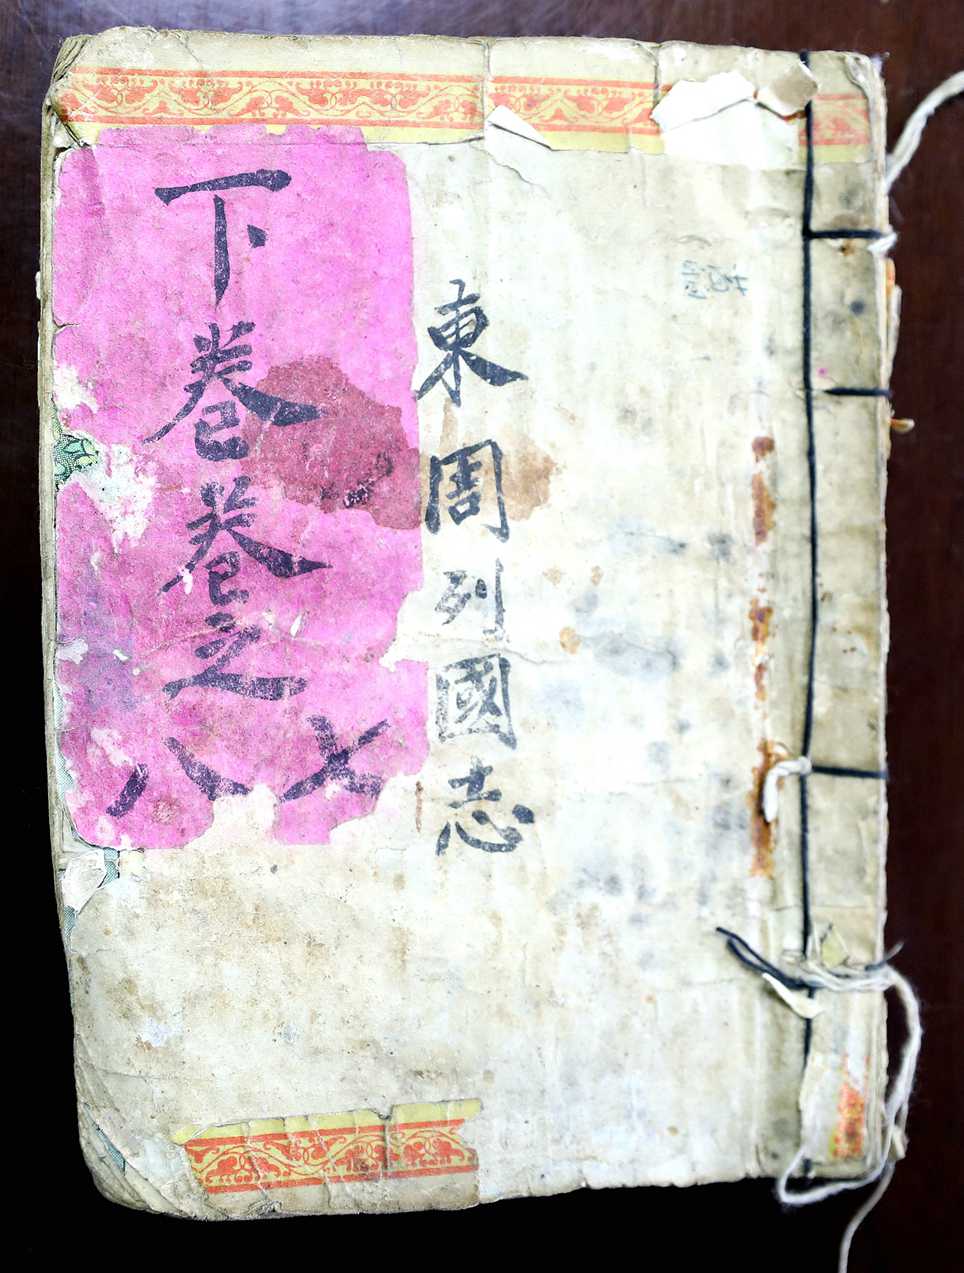 東周列國志
下卷卷之
七八